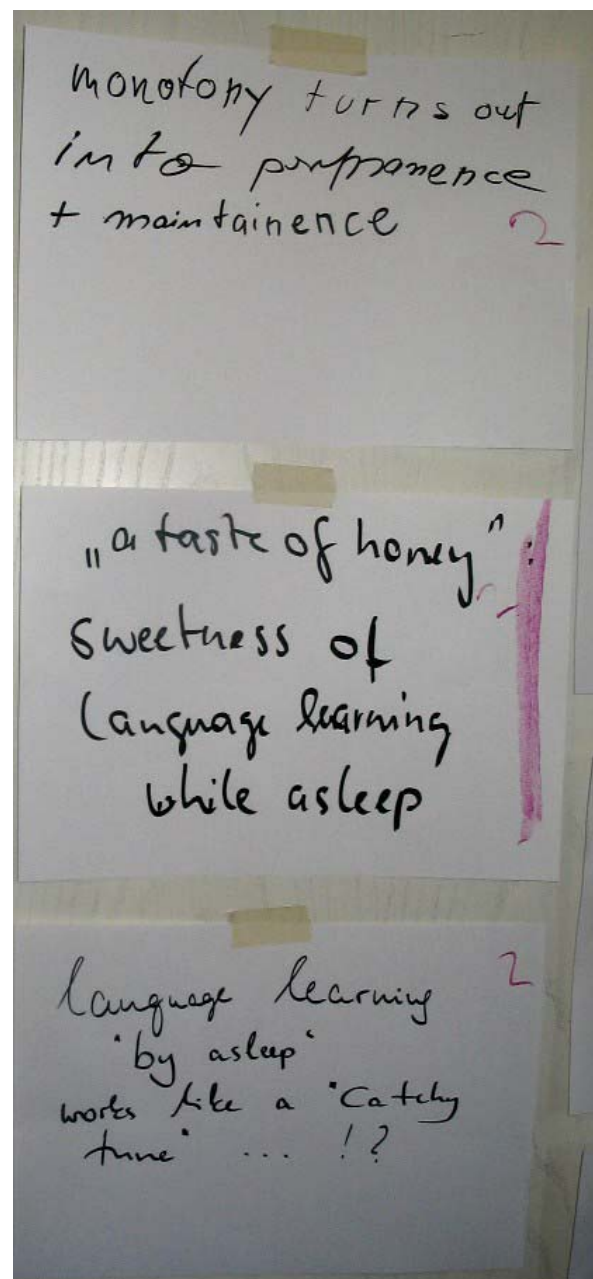 monotony turns out
into
+ maintainence
2
„a taste of honey“:
sweetness of
language learning
while asleep
language learning
2
"by asleep"
works like a "Catchy
tune" ... !?